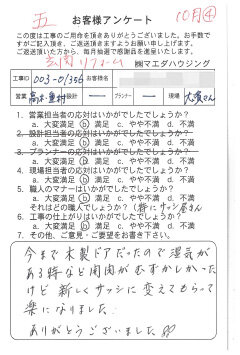 五
お客様アンケート
10月④
この度は工事のご用命を頂きありがとうございました。お手数で
すがご記入頂き、ご返送頂きますようお願い申し上げます。
ご返送頂いた方から、毎月抽選で感謝品を進呈いたします。
玄関リフォーム
㈱マエダハウジング
工事ID 003-01356 お客様名
営業 設計 ー プランナー ー 現場
1. 営業担当者の応対はいかがでしたでしょうか?
a. 大変満足 b 満足 c. やや不満 d. 不満
2. 設計担当者の応対はいかがでしたでしょうか?
a. 大変満足 b. 満足 c. やや不満 d. 不満
3. プランナーの応対はいかがでしたでしょうか?
a. 大変満足 b. 満足 c. やや不満 d. 不満
4. 現場担当者の応対はいかがでしたでしょうか?
a. 大変満足 b 満足 c. やや不満 d. 不満
5. 職人のマナーはいかがでしたでしょうか?
a. 大変満足 b 満足 c. やや不満 d. 不満
それはどの職人でしょうか?(特にサッシ屋さん
6. 工事の仕上がりはいかがでしたでしょうか?
a. 大変満足 b 満足 c. やや不満 d. 不満
7. その他、ご意見・ご要望をお書き下さい。
今まで木製ドアだったので湿気が
ある時など開閉がむずかしかった
けど 新しくサッシに変えてもらって
楽になりました
ありがとうございました